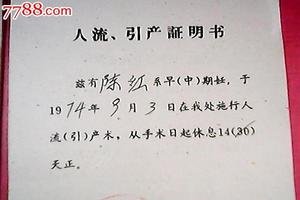 7788.com
人流、引产証明书
兹有陈红系早(中)期妊,于
1974年9月3日在我处施行人
流(引)产术,从手术日起休息14(30)
天正。